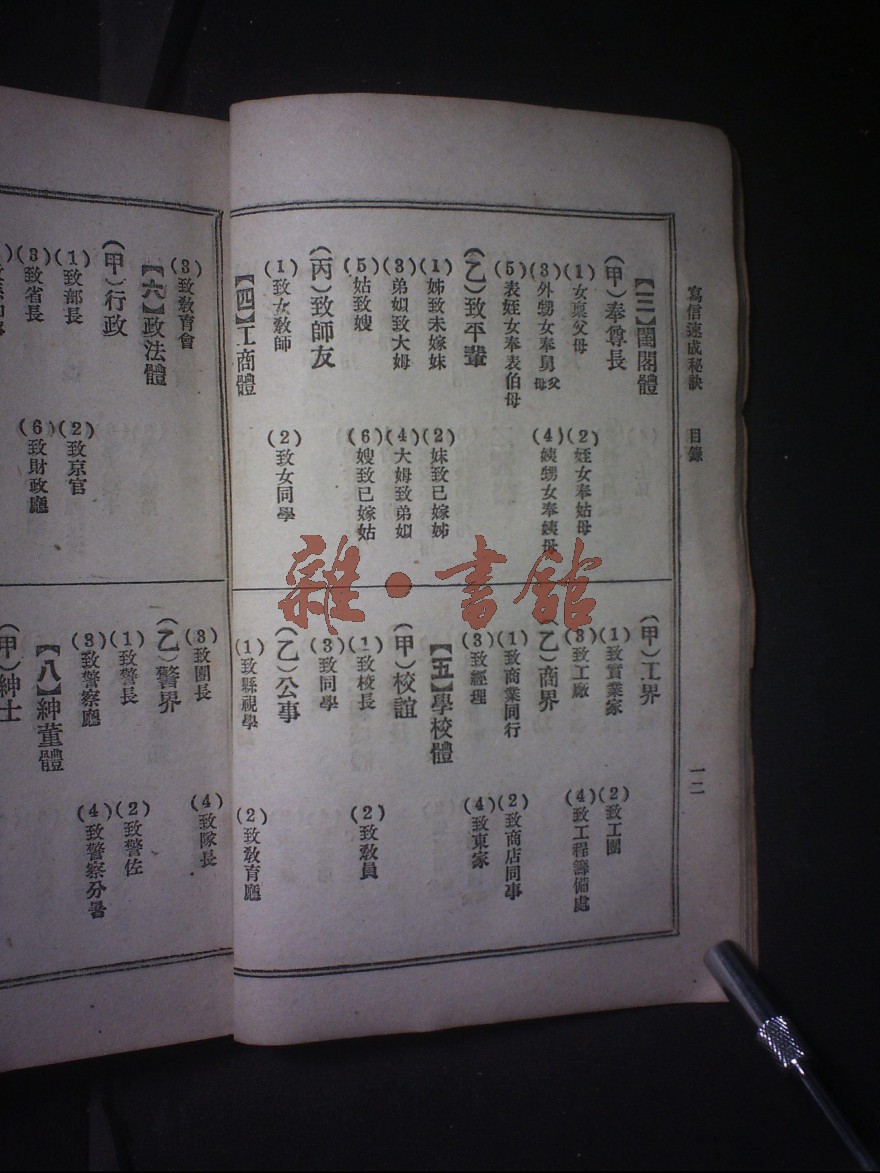 寫信速成秘訣 目錄 一二
【三】閨閣體
(甲)奉尊長
(1)女稟父母 (2)姪女奉姑母
(3)外甥女奉舅父母 (4)姨甥女奉姨母
(5)表姪女奉表伯母
(乙)致平輩
(1)姊致未嫁妹 (2)妹致已嫁姊
(3)弟姒致大姆 (4)大姆致弟姒
(5)姑致嫂 (6)嫂致已嫁姑
(丙)致師友
(1)致女教師 (2)致女同學
【四】工商體
(甲)工界
(1)致實業家 (2)致工團
(3)致工廠 (4)致工程籌備處
(乙)商界
(1)致商業同行 (2)致商店同事
(3)致經理 (4)致東家
【五】學校體
(甲)校誼
(1)致校長 (2)致教員
(3)致同學
(乙)公事
(1)致縣視學 (2)致教育廳
(3)致教育會
【六】政法體
(甲)行政
(1)致部長 (2)致京官
(3)致省長 (6)致財政廳
(3)致團長 (4)致隊長
(乙)警界
(1)致警長 (2)致警佐
(3)致警察廳 (4)致警察分署
【八】紳董體
(甲)紳士
雜·書館